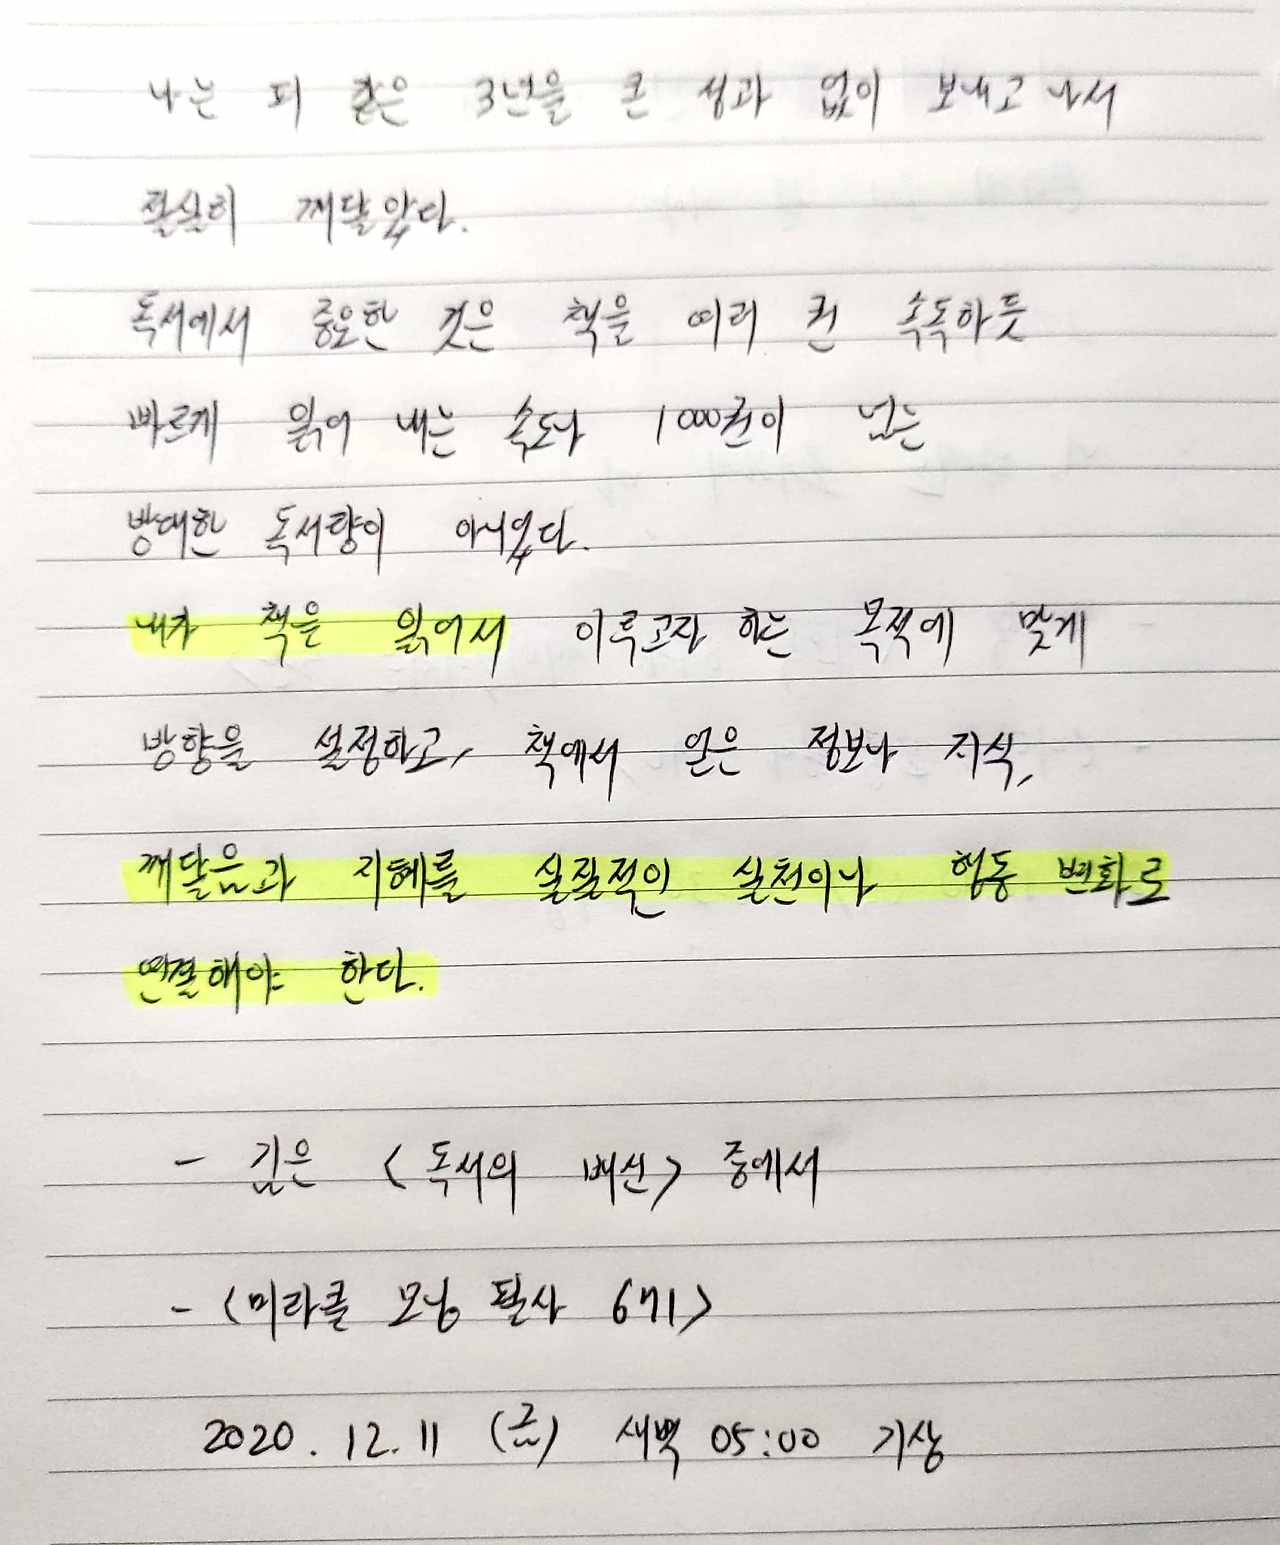 나는 피 같은 3년을 큰 성과 없이 보내고 나서
절실히 깨달았다.
독서에서 중요한 것은 책을 여러 권 속독하듯
빠르게 읽어 내는 속도나 1000권이 넘는
방대한 독서량이 아니었다.
내가 책을 읽어서 이루고자 하는 목적에 맞게
방향을 설정하고, 책에서 얻은 정보나 지식,
깨달음과 지혜를 실질적인 실천이나 행동 변화로
연결해야 한다.
- 깊은 <독서의 배신> 중에서
- <미라클 모닝 필사 6기>
2020. 12. 11 (금) 새벽 05:00 기상